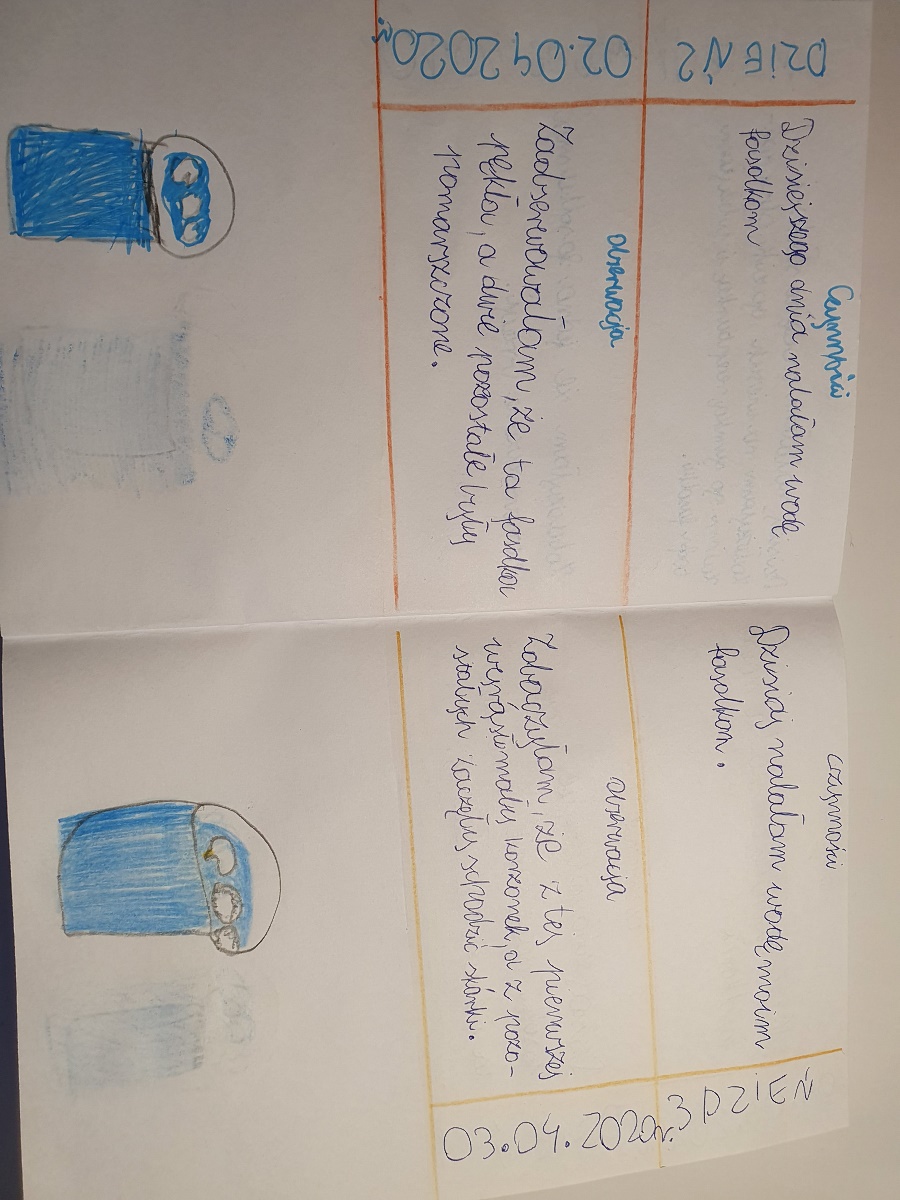 DZIEŃ 2
02.04 2020r.
Czynności
Dzisiejszego dnia nalałam wodę
fasolkom
obserwacja
Zaobserwowałam, że ta fasolka
pękła, a dwie pozostałe były
pomarszczone.
3 DZIEŃ
03.04.2020r.
czynności
Dzisiaj nalałam wodę moim
fasolkom.
obserwacja
Zobaczyłam, że z tej pierwszej
mały korzonek, a z pozo-
stałych zaczęły schodzić skórki.